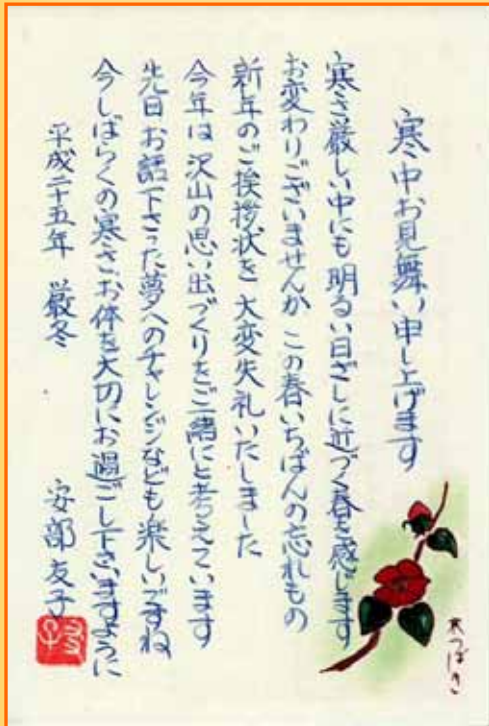 寒中お見舞い申し上げます
寒さ厳しい中にも 明るい日ざしに近づく春を感じます
お変わりございませんか この春いちばんの忘れもの
新年のご挨拶状を 大変失礼いたしました
今年は 沢山の思い出づくりをご一緒にと考えています
先日 お話下さった夢へのチャレンジなども 楽しいですね
今しばらくの寒さ、お体を大切にお過ごし下さいますように
平成二十五年 厳冬
安部友子
寒つばき